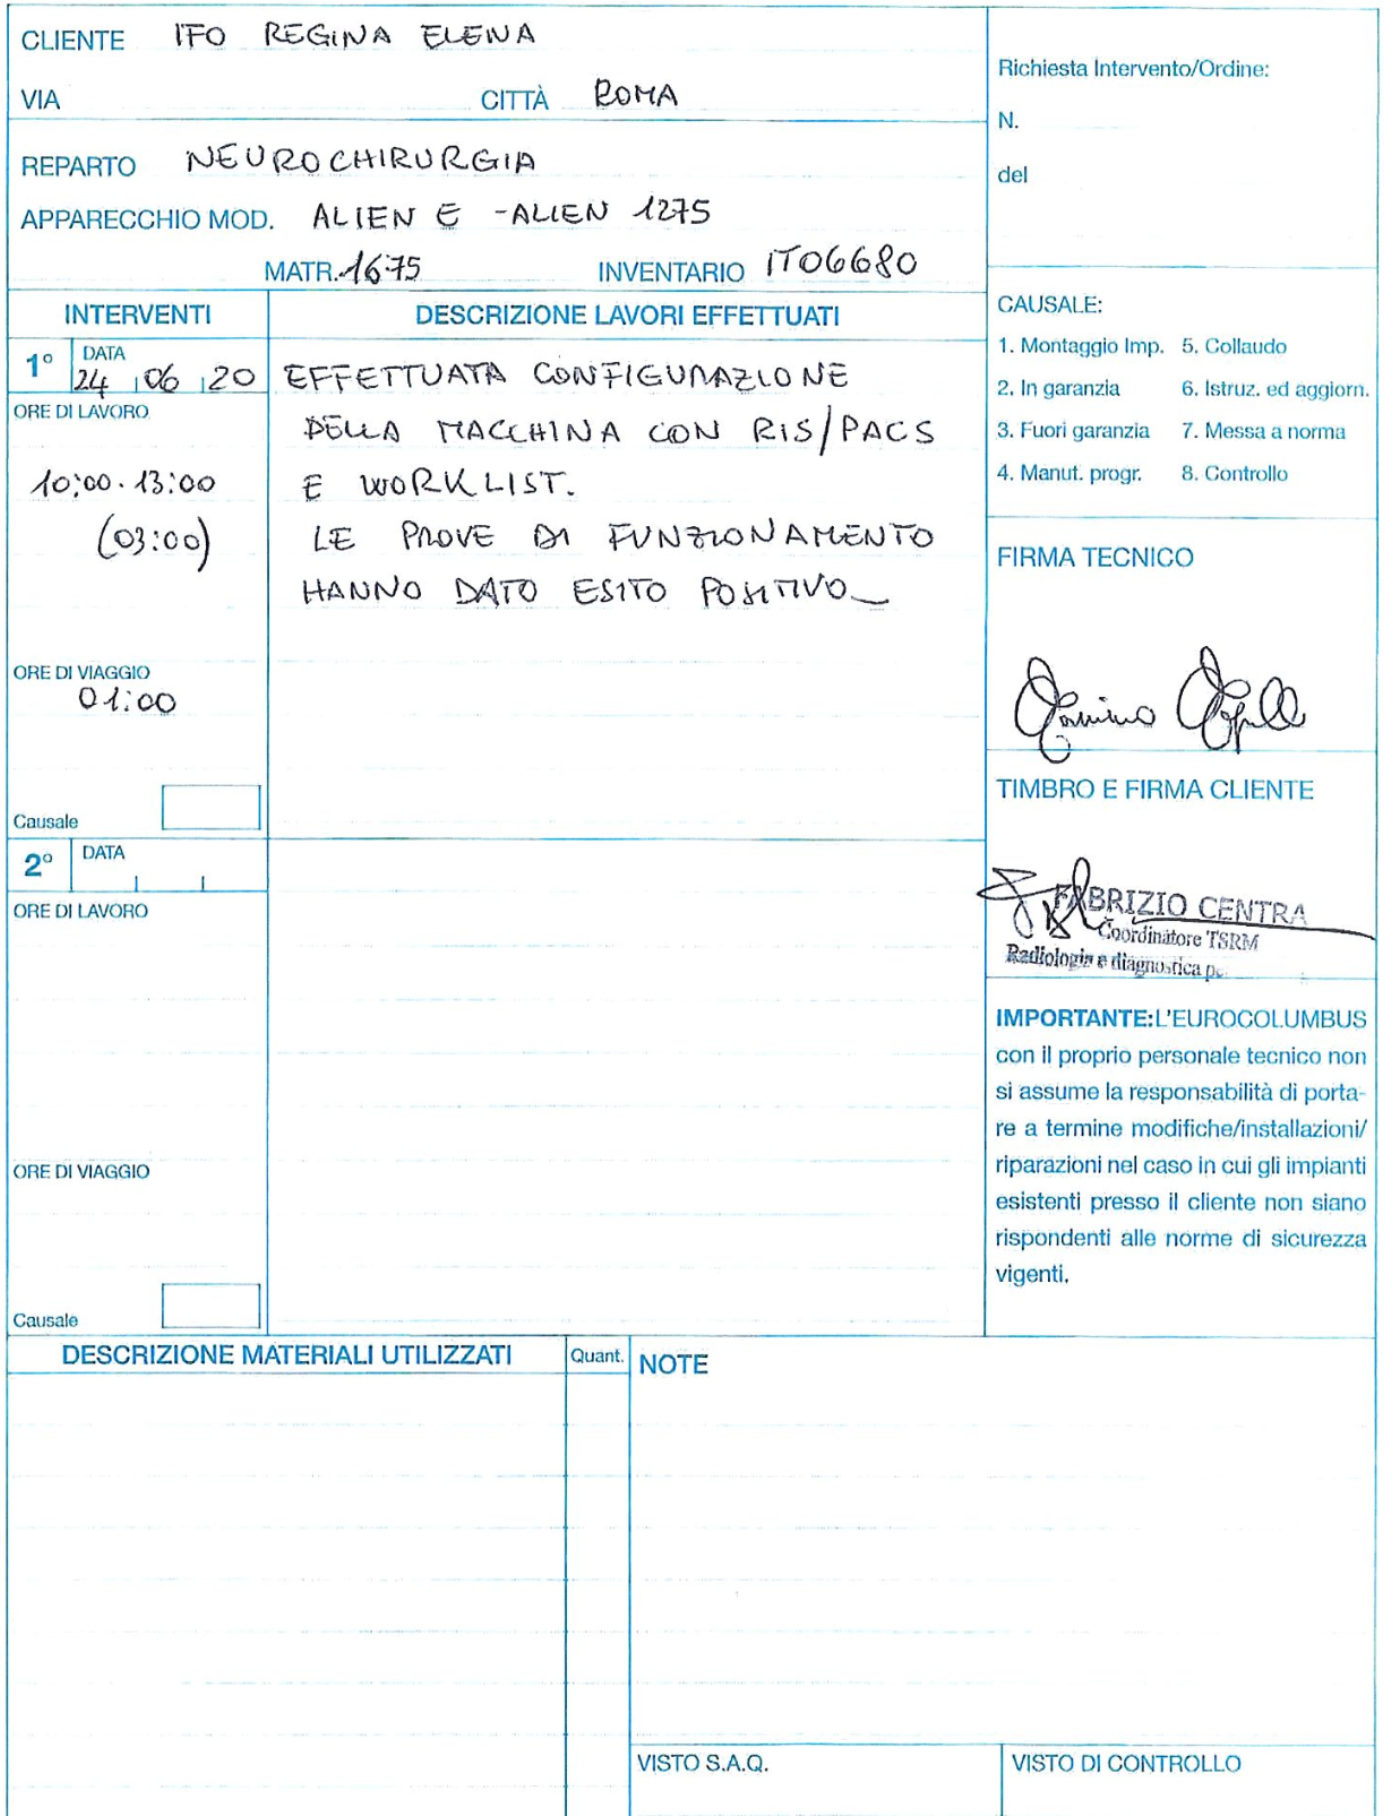 CLIENTE IFO REGINA ELENA
VIA CITTÀ ROMA
REPARTO NEUROCHIRURGIA
APPARECCHIO MOD. ALIEN E - ALIEN 1275
MATR. 1675 INVENTARIO IT06680
Richiesta Intervento/Ordine:
N.
del
INTERVENTI
DESCRIZIONE LAVORI EFFETTUATI
1° DATA
24 06 20
ORE DI LAVORO
10:00 - 13:00
(03:00)
ORE DI VIAGGIO
01:00
Causale
EFFETTUATA CONFIGURAZIONE
DELLA MACCHINA CON RIS/PACS
E WORKLIST.
LE PROVE DI FUNZIONAMENTO
HANNO DATO ESITO POSITIVO
CAUSALE:
1. Montaggio Imp. 5. Collaudo
2. In garanzia 6. Istruz. ed aggiorn.
3. Fuori garanzia 7. Messa a norma
4. Manut. progr. 8. Controllo
FIRMA TECNICO
TIMBRO E FIRMA CLIENTE
FABRIZIO CENTRA
Coordinatore TSRM
Radiologia e diagnostica
2° DATA
ORE DI LAVORO
ORE DI VIAGGIO
Causale
IMPORTANTE: L'EUROCOLUMBUS
con il proprio personale tecnico non
si assume la responsabilità di porta-
re a termine modifiche/installazioni/
riparazioni nel caso in cui gli impianti
esistenti presso il cliente non siano
rispondenti alle norme di sicurezza
vigenti.
DESCRIZIONE MATERIALI UTILIZZATI Quant. NOTE
VISTO S.A.Q. VISTO DI CONTROLLO